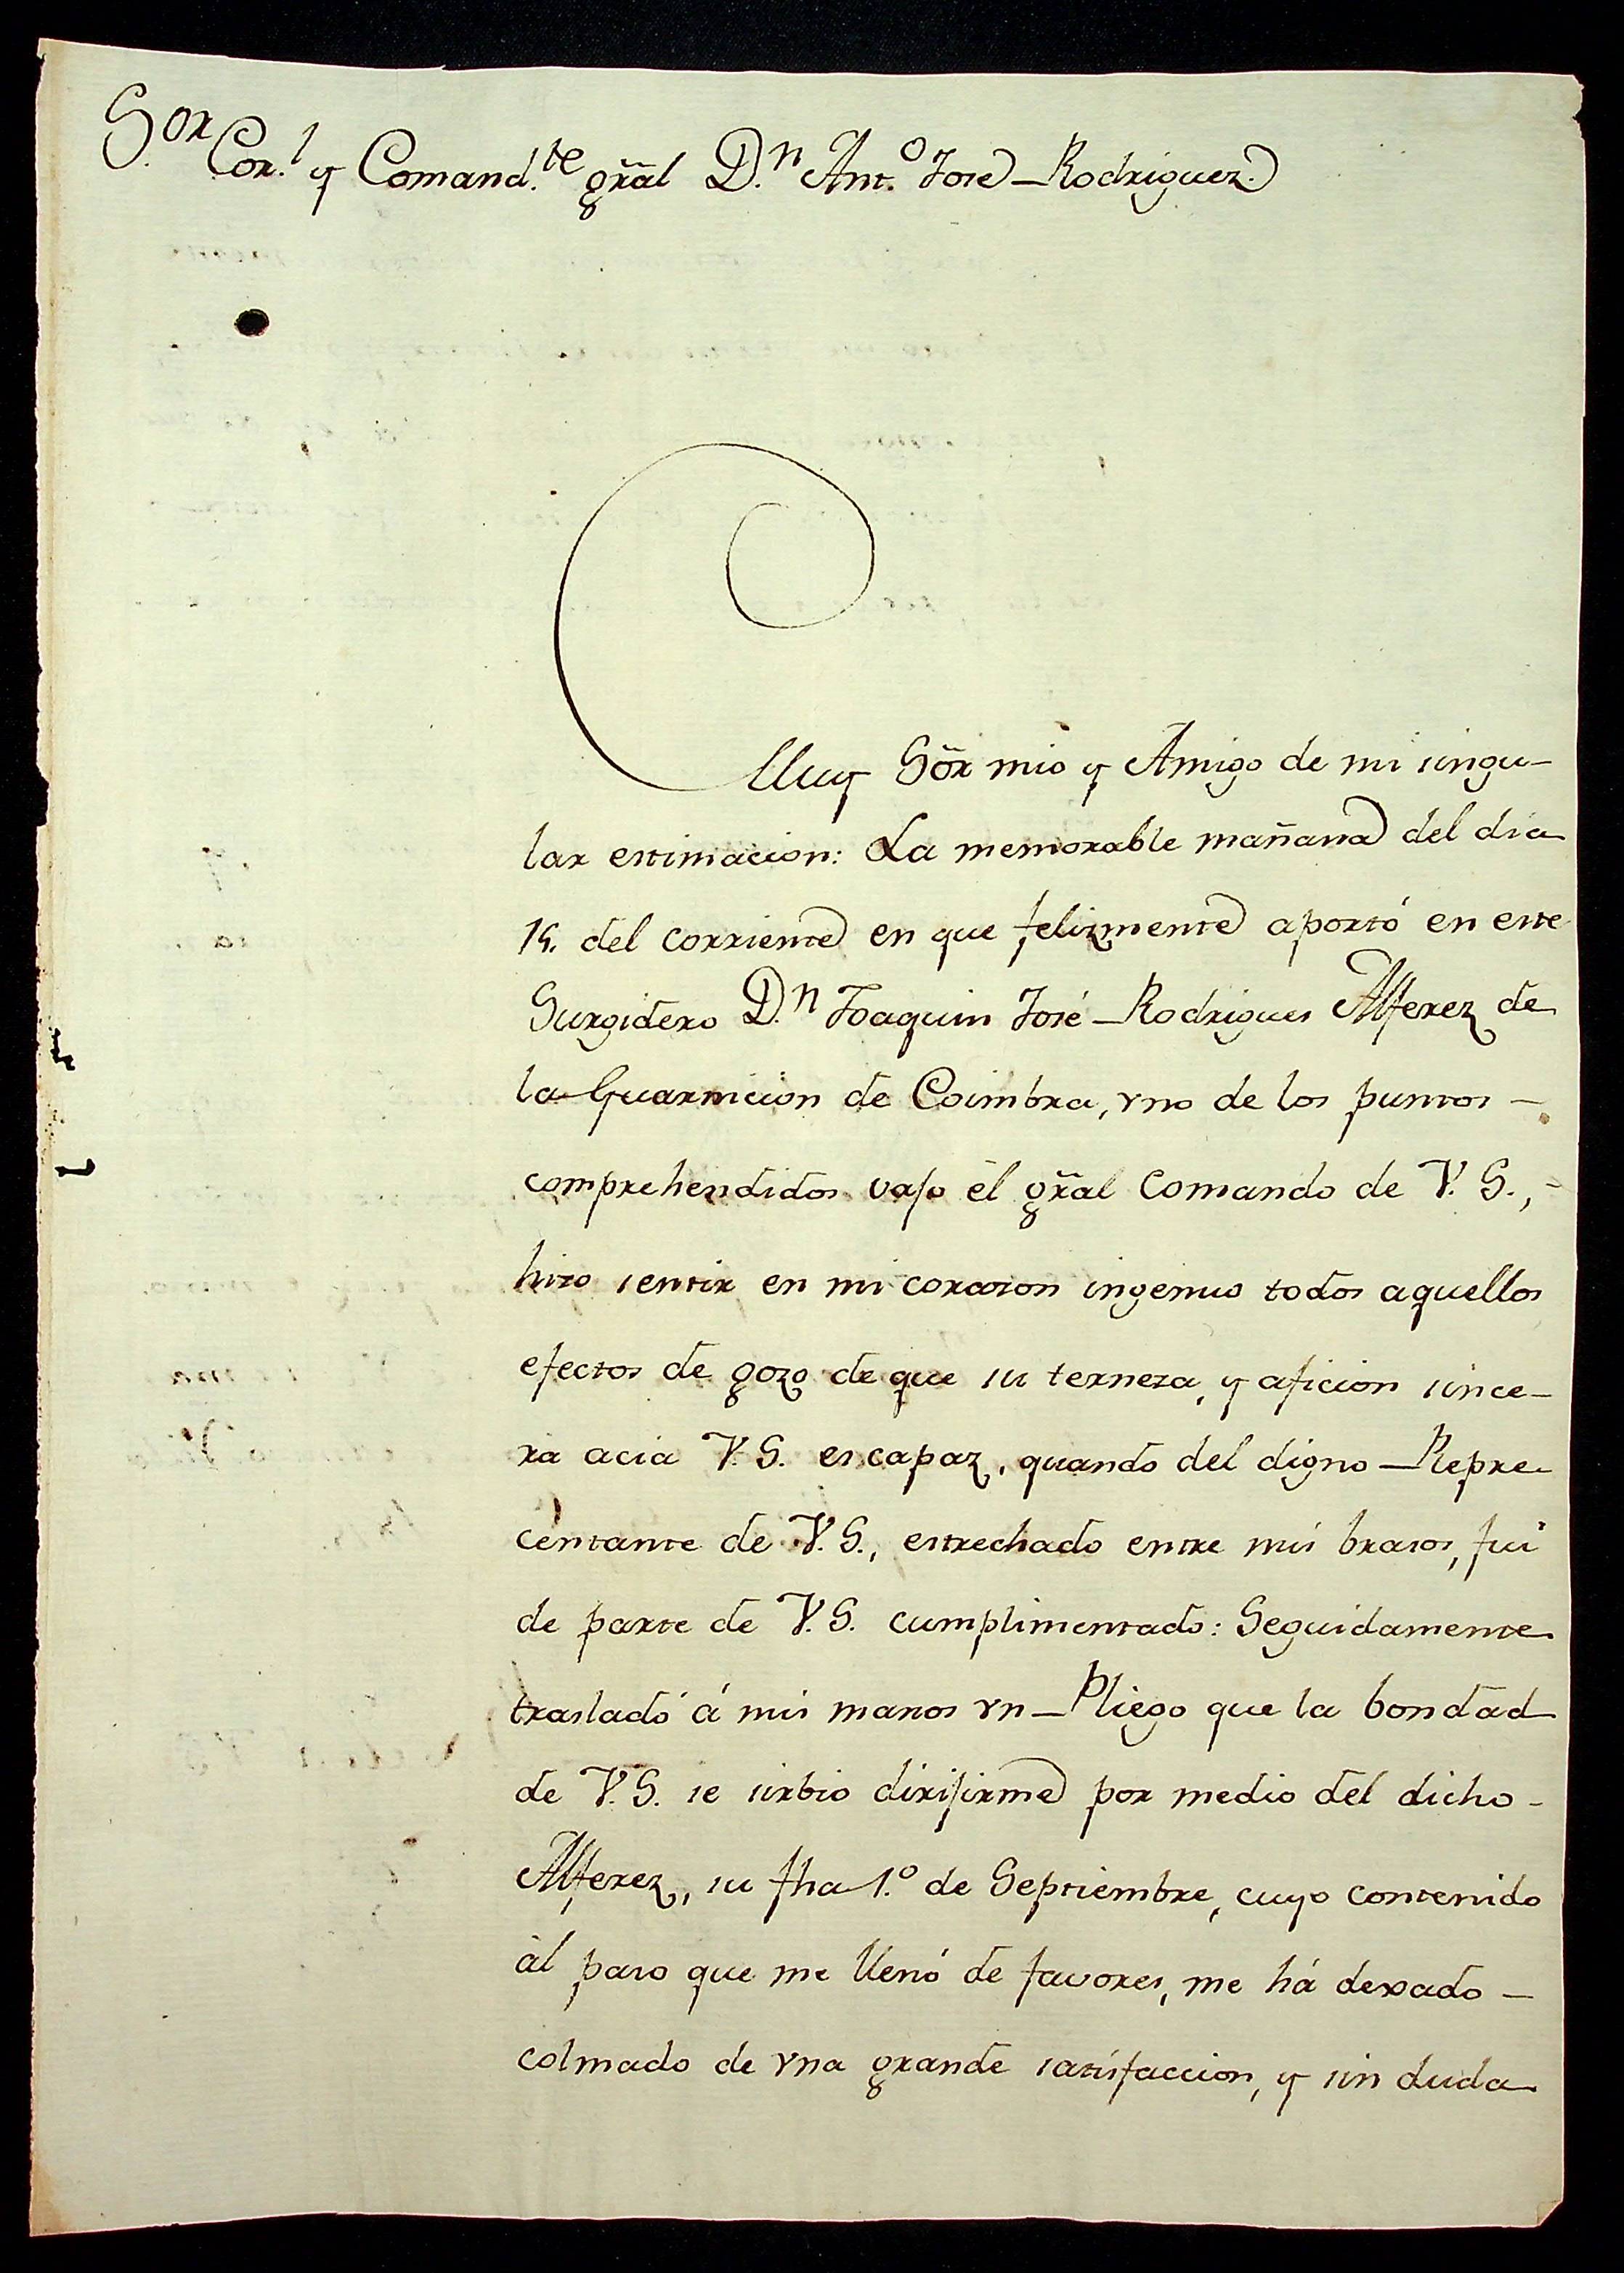 S.or Cor.l y Comand.te gr̃al D.n Ant.o José Rodriguez.
Muy Sõr mio y Amigo de mi singu-
lar estimacion: La memorable mañana del dia
15. del corriente en que felizmente aportó en este
Surgidero D.n Joaquin José Rodrigues Alferez de
la Guarnicion de Coimbra, vno de los puntos -
comprehendidos vajo èl gr̃al Comando de V. S., -
hizo sentir en mi corazon ingenuo todos aquellos
efectos de gozo de que su terneza, y aficion since-
ra acia V. S. es capaz, quando del digno Repre-
centante de V. S., estrechado entre mis brasos, fui
de parte de V. S. cumplimentado: Seguidamente
trasladó á mis manos vn Pliego que la bondad
de V. S. se sirbio dirijirme por medio del dicho -
Alferez, su fha 1.o de Septiembre, cuyo contenido
àl paso que me llenó de favores, me há dexado -
colmado de vna grande satisfaccion, y sin duda